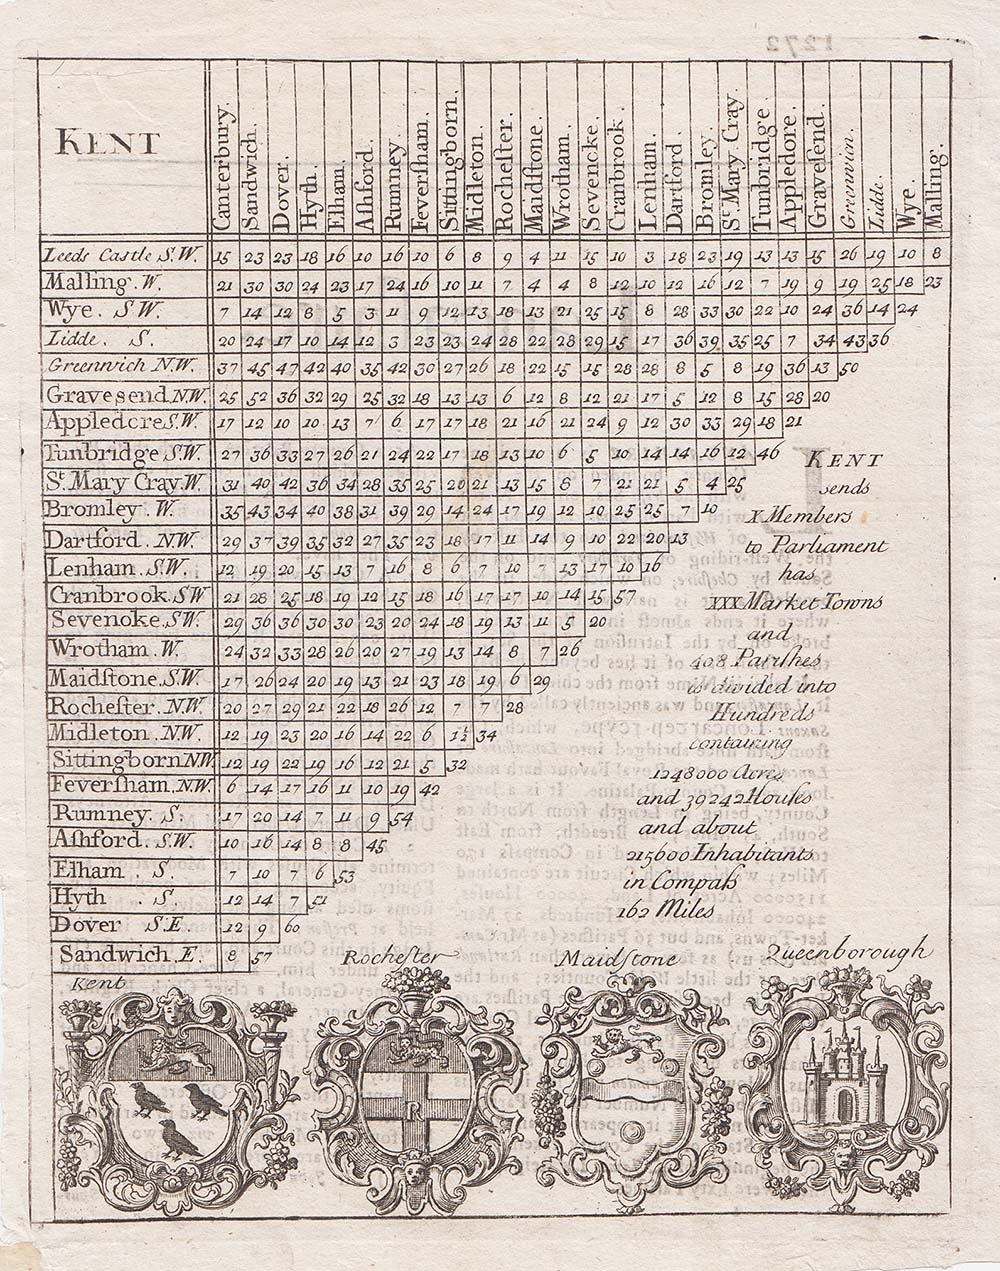 1272
KENT
Canterbury. Sandwich. Dover. Hyth. Elham. Aſhford. Rumney. Feverſham. Sittingborn. Midleton. Rocheſter. Maidſtone. Wrotham. Sevencke. Cranbrook Lenham. Dartford. Bromley. St. Mary Cray. Tunbridge. Appledore. Graveſend. Greenwich. Lidde. Wye. Malling.
Leeds Castle S.W. 15 23 23 18 16 10 16 10 6 8 9 4 11 15 10 3 18 23 19 13 13 15 26 19 10 8
Malling. W. 21 30 30 24 23 17 24 16 10 11 7 4 4 8 12 10 12 16 12 7 19 9 19 25 18 23
Wye. S W. 7 14 12 8 5 3 11 9 12 13 18 13 21 25 15 8 28 33 30 22 10 24 36 14 24
Lidde. S. 20 24 17 10 14 12 3 23 23 24 28 22 28 29 15 17 36 39 35 25 7 34 43 36
Greenwich N.W. 37 45 47 42 40 35 42 30 27 26 18 22 15 15 28 28 8 5 8 19 36 13 50
Gravesend N.W. 25 52 36 32 29 25 32 18 13 13 6 12 8 12 21 17 5 12 8 15 28 20
Appledcre S.W. 17 12 10 10 13 7 6 17 17 18 21 16 21 24 9 12 30 33 29 18 21
Tunbridge S.W. 27 36 33 27 26 21 24 22 17 18 13 10 6 5 10 14 14 16 12 46
St. Mary Cray. W. 31 40 42 36 34 28 35 25 20 21 13 15 8 7 21 21 5 4 25
Bromley. W. 35 43 34 40 38 31 39 29 14 24 17 19 12 10 25 25 7 10
Dartford. N.W. 29 37 39 35 32 27 35 23 18 17 11 14 9 10 22 20 13
Lenham. S.W. 12 19 20 15 13 7 16 8 6 7 10 7 13 17 10 16
Cranbrook. S.W 21 28 25 18 19 12 15 18 16 17 17 10 14 15 57
Sevenoke. S.W. 29 36 36 30 30 23 20 24 18 19 13 11 5 20
Wrotham. W. 24 32 33 28 26 20 27 19 13 14 8 7 26
Maidſtone. S.W. 17 26 24 20 19 13 21 23 18 19 6 29
Rocheſter. N.W. 20 27 29 21 22 18 26 12 7 7 28
Midleton. N.W. 12 19 23 20 16 14 22 6 1½ 34
Sittingborn N.W 12 19 22 19 16 12 21 5 32
Feverſham. N.W. 6 14 17 16 11 10 19 42
Rumney. S. 17 20 14 7 11 9 54
Aſhford. S.W. 10 16 14 8 8 45
Elham. S. 7 10 7 6 53
Hyth. S. 12 14 7 51
Dover S.E 12 9 60
Sandwich. E. 8 57
KENT
sends
X Members
to Parliament
has
XXX Market Towns
and
408 Pariſhes
is divided into
Hundreds
containing
1248000 Acres
and 39242 Houſes
and about
215600 Inhabitants
in Compaſs
162 Miles
Kent
Rocheſter
Maidſtone
Queenborough
R